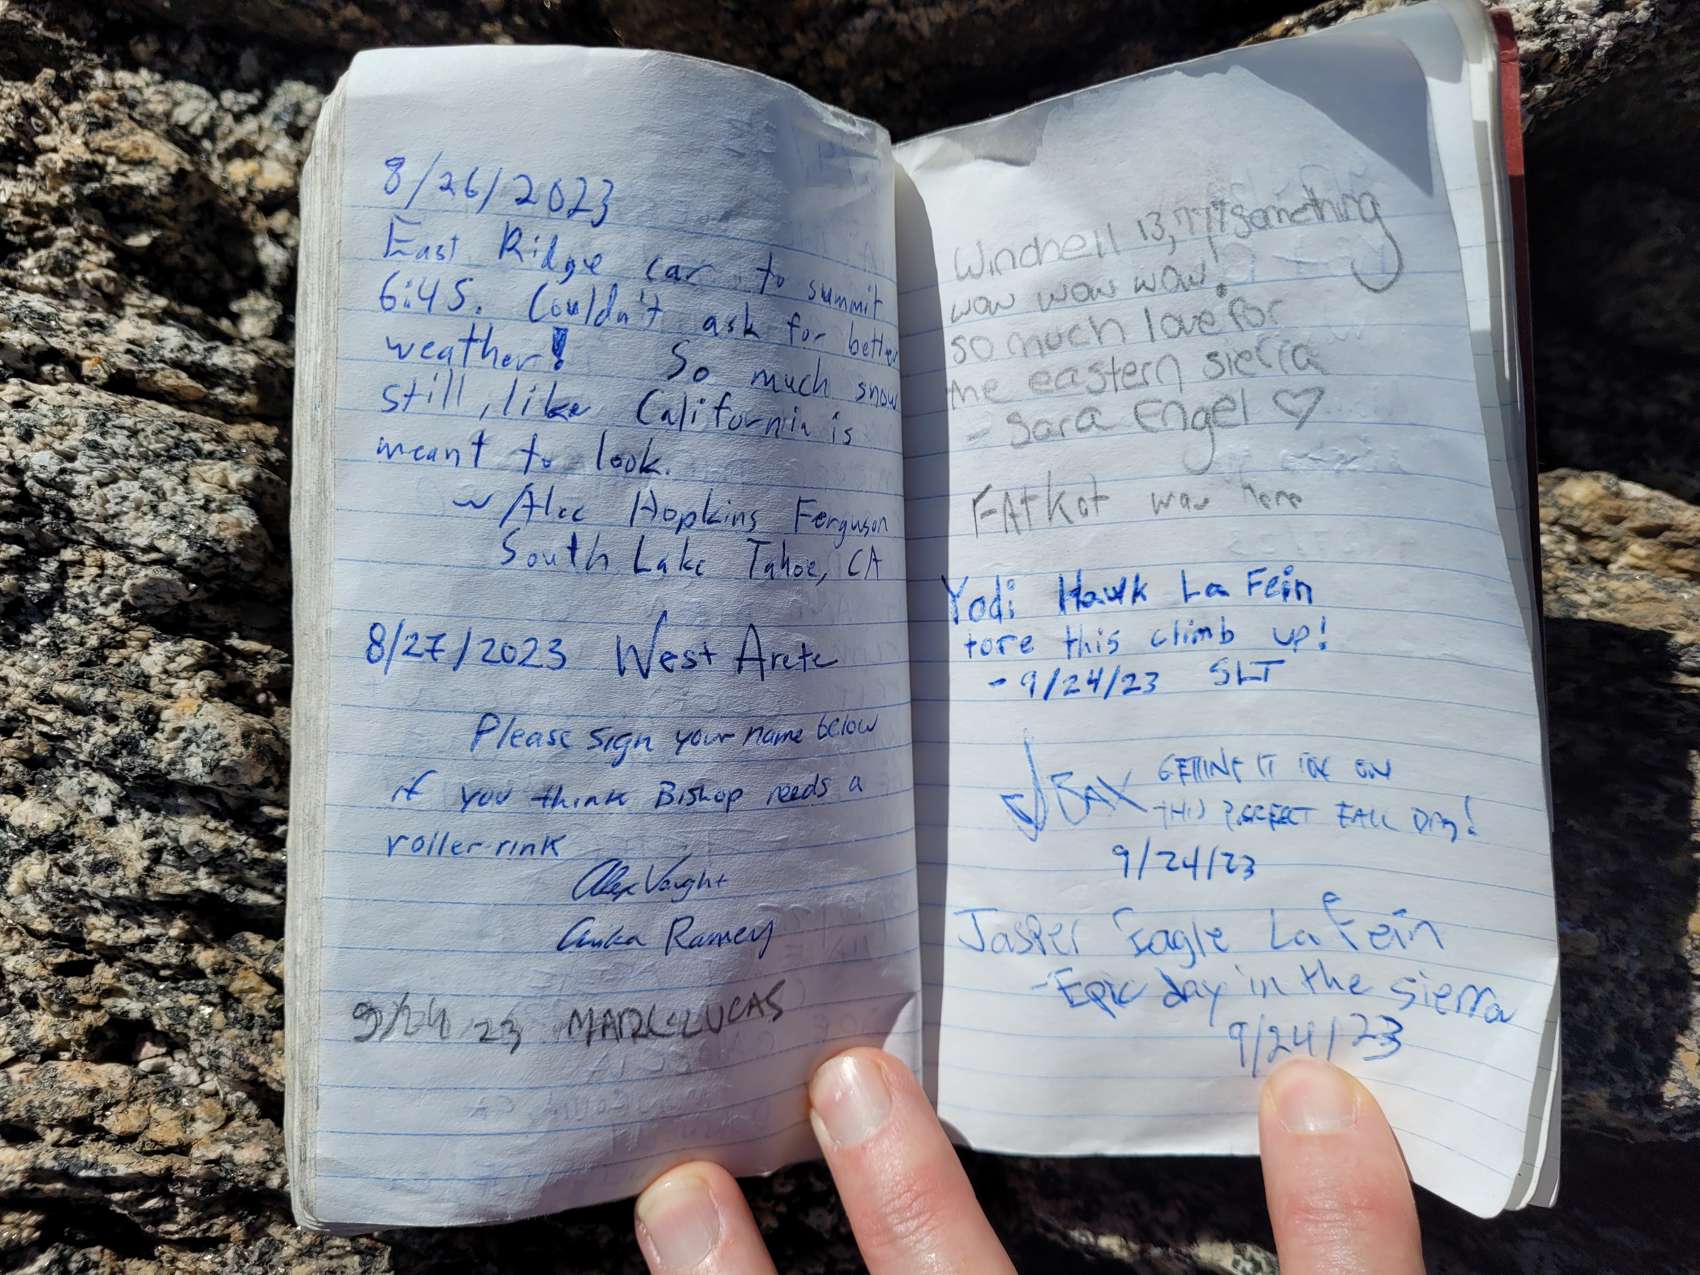 8/26/2023
East Ridge car to summit
6:45. Couldn't ask for better
weather! So much snow
still, like California is
meant to look.
~ Alec Hopkins Ferguson
South Lake Tahoe, CA
8/27/2023 West Arete
Please sign your name below
if you think Bishop needs a
roller rink
Alex Vaught
Anka Ramey
9/24 23 MARK LUCAS
Winchell 13,777something
wow wow wow!
so much love for
the eastern sierra
- Sara Engel ♡
FAtKat was here
Yodi Hawk La Fein
tore this climb up!
- 9/24/23 SLT
BAX GETTING IT ON
THIS PERFECT FALL DAY!
9/24/23
Jasper Eagle La Fein
- Epic day in the sierra
9/24/23